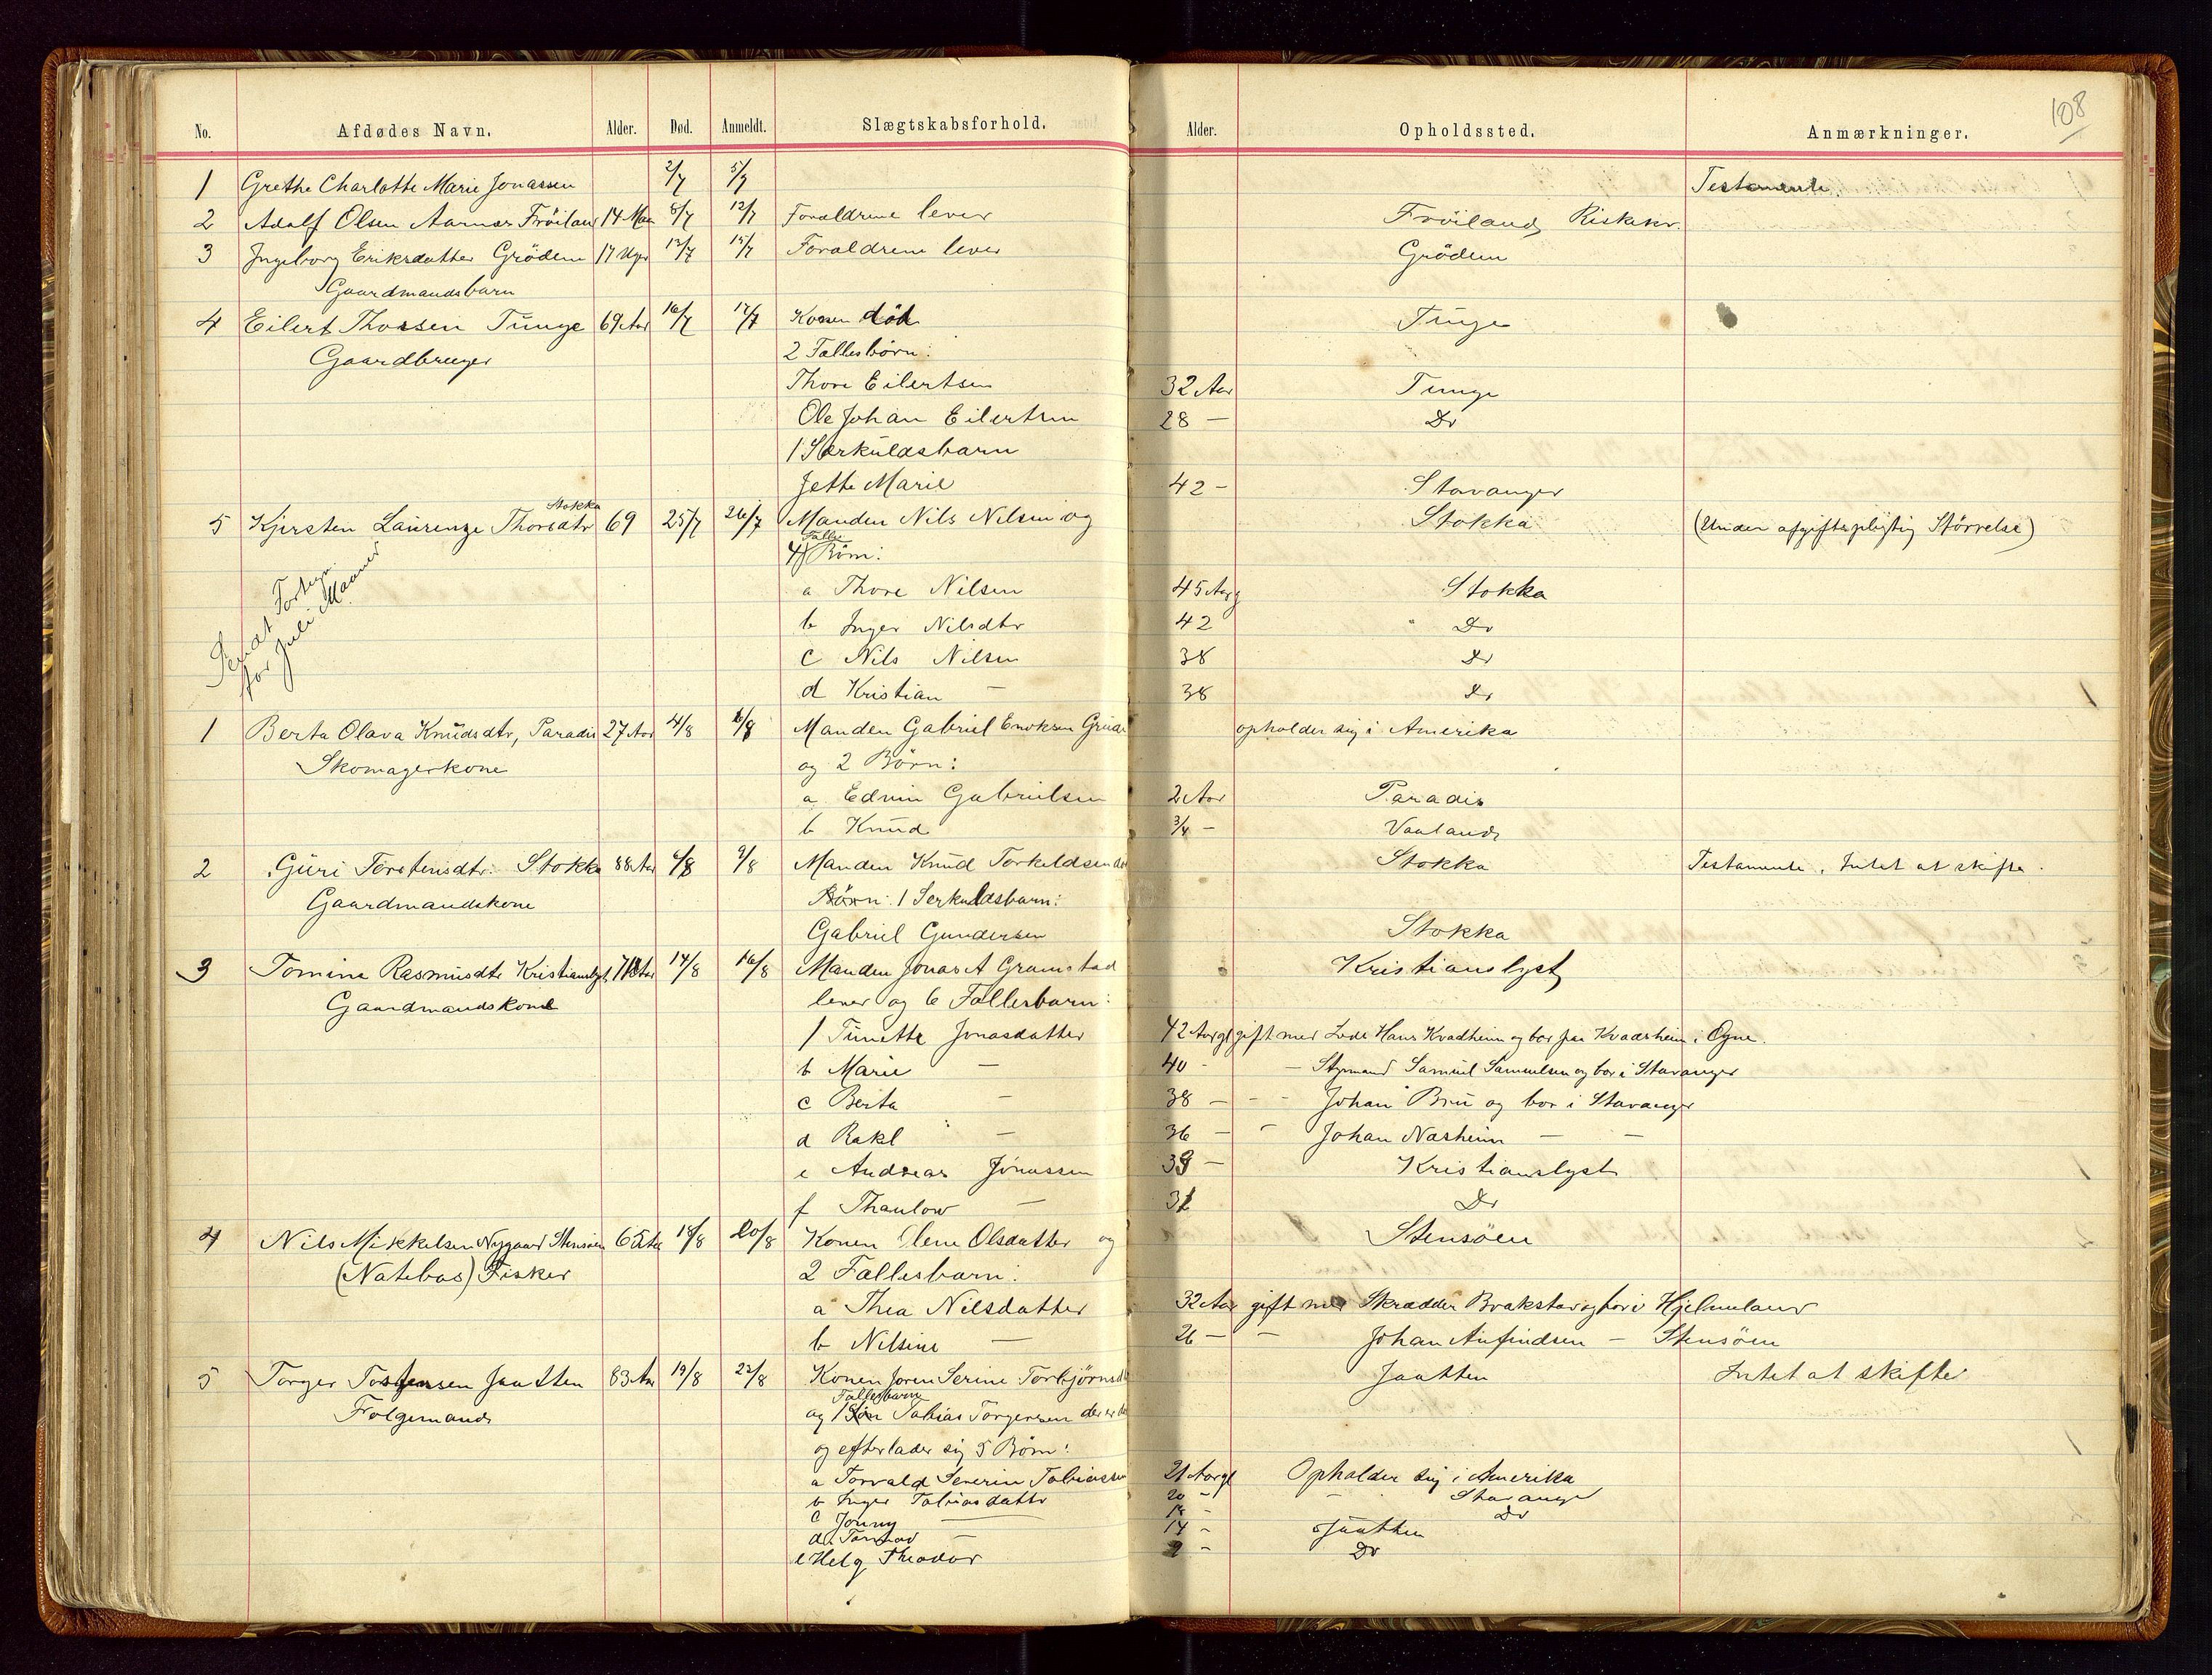 108
No. Afdødes Navn. Alder. Død. Anmeldt. Slægtskabsforhold. Alder. Opholdssted. Anmærkninger.
1 Grethe Charlotte Marie Jonassen 2/7 5/7 Testamente.
2 Adolf Olsen Aamar Fröiland 14 Maa 8/7 12/7 Forældrene lever Fröiland Riskekv.
3 Ingeborg Eriksdatter Grödem 17 Uger 12/7 15/7 Forældrene lever Grödem
Gaardmandsbarn
4 Eilert Thorsen Tunge 69 Aar 16/7 17/7 Konen död Tunge
Gaardbruger 2 Fællesbörn:
Thore Eilertsen 32 Aar Tunge
Ole Johan Eilertsen 28 — Do
1 Særkuldsbarn
Jette Marie 42 — Stavanger
Stokka
5 Kjersten Laurenze Thoresdtr 69 25/7 26/7 Manden Nils Nilsen og Stokka (Under afgiftspligtig Störrelse)
Fælles
4 Börn:
Sendt Fortegn.
for Juli Maaned
a Thore Nilsen 45 Aar g Stokka
b Inger Nilsdtr 42 " Do
c Nils Nilsen 38 Do
d Kristian — 38 Do
1 Berta Olava Knudsdtr, Paradis 27 Aar 4/8 6/8 Manden Gabriel Enoksen opholder sig i Amerika
Skomagerkone og 2 Börn:
a Edvin Gabrielsen 2 Aar Paradis
b Knud 3/4 — Vaaland
2 Guri Torstensdtr. Stokka 88 Aar 6/8 9/8 Manden Knud Torkeldsen Stokka Testamente. Intet at skifte.
Gaardmandskone Börn: 1 Serkuldsbarn:
Gabriel Gundersen Stokka
3 Tomine Rasmusdtr Kristianslyst Aar 14/8 16/8 Manden Jonas A Gramstad Kristianslyst
Gaardmandskone lever og 6 Fællesbarn:
1 Tunette Jonasdatter 42 Aar gl gift med Hans Kvadheim og bor paa Kvadsheim i Ogne.
b Marie — 40 - — Styrmand Samuel Samuelsen og bor i Stavanger
c Berta — 38 — - - Johan Bru og bor i Stavanger
d Rakl — 36 — - Johan Næsheim — —
e Andreas Jonassen 33 — Kristianslyst
f Thaulow — 31 Do
4 Nils Mikkelsen Nygaard Stensöen 65 Aar 18/8 20/8 Konen Olene Olsdatter og Stensöen
(Notebas) Fisker 2 Fællesbarn:
a Thea Nilsdatter 32 Aar gift med Skrædder Brakstav og bor i Hjelmeland
b Nilsine — 26 — — Johan Anfindsen — Stensöen
5 Torger Torgersen Jaatten 83 Aar 19/8 22/8 Konen Joren Serine Torbjörnsd Jaatten Intet at skifte
Fællesbarn
Folgemand og 1 Sön Tobias Torgersen der er
og efterlader sig 5 Börn:
a Torvald Severin Tobiassen 21 Aar gl Opholder sig i Amerika
b Inger Tobiasdatter 20 - — Stavanger
c Jonny — - Do
d — 14 - Jaatten
e Helg Theodor - Do